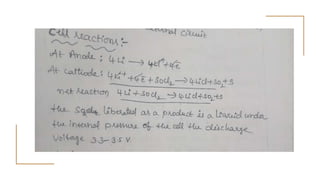 Cell reactions:-
At Anode: 4Li → 4Li⁺+4ē
At cathode: 4Li⁺+4ē+SOCl₂ → 4LiCl+SO₂+S
net reaction 4Li+SOCl₂ → 4LiCl+SO₂+S
the liberated as a product is a liquid under
the internal pressure of the cell the discharge
Voltage 3.3-3.5 V.